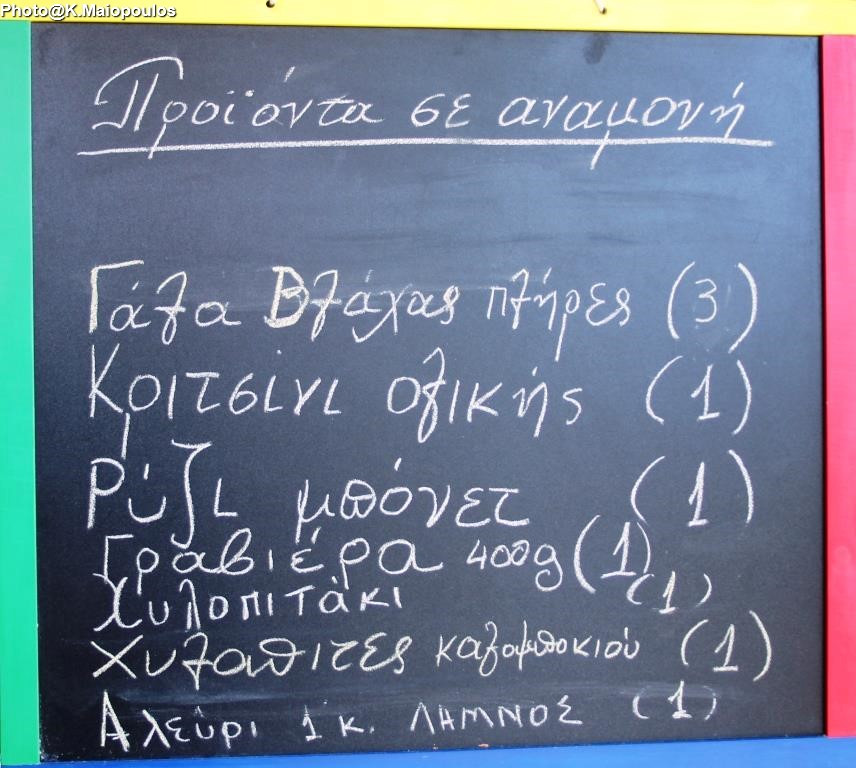 Photo@K.Maiopoulos
Προϊόντα σε αναμονή
Γάλα Βλάχας πλήρες (3)
Κριτσίνι ολικής (1)
Ρύζι μπόνετ (1)
Γραβιέρα 400g (1)
Χυλοπιτάκι (1)
Χυλαπιτες καλαμποκιού (1)
Αλεύρι 1 κ. ΛΗΜΝΟΣ (1)